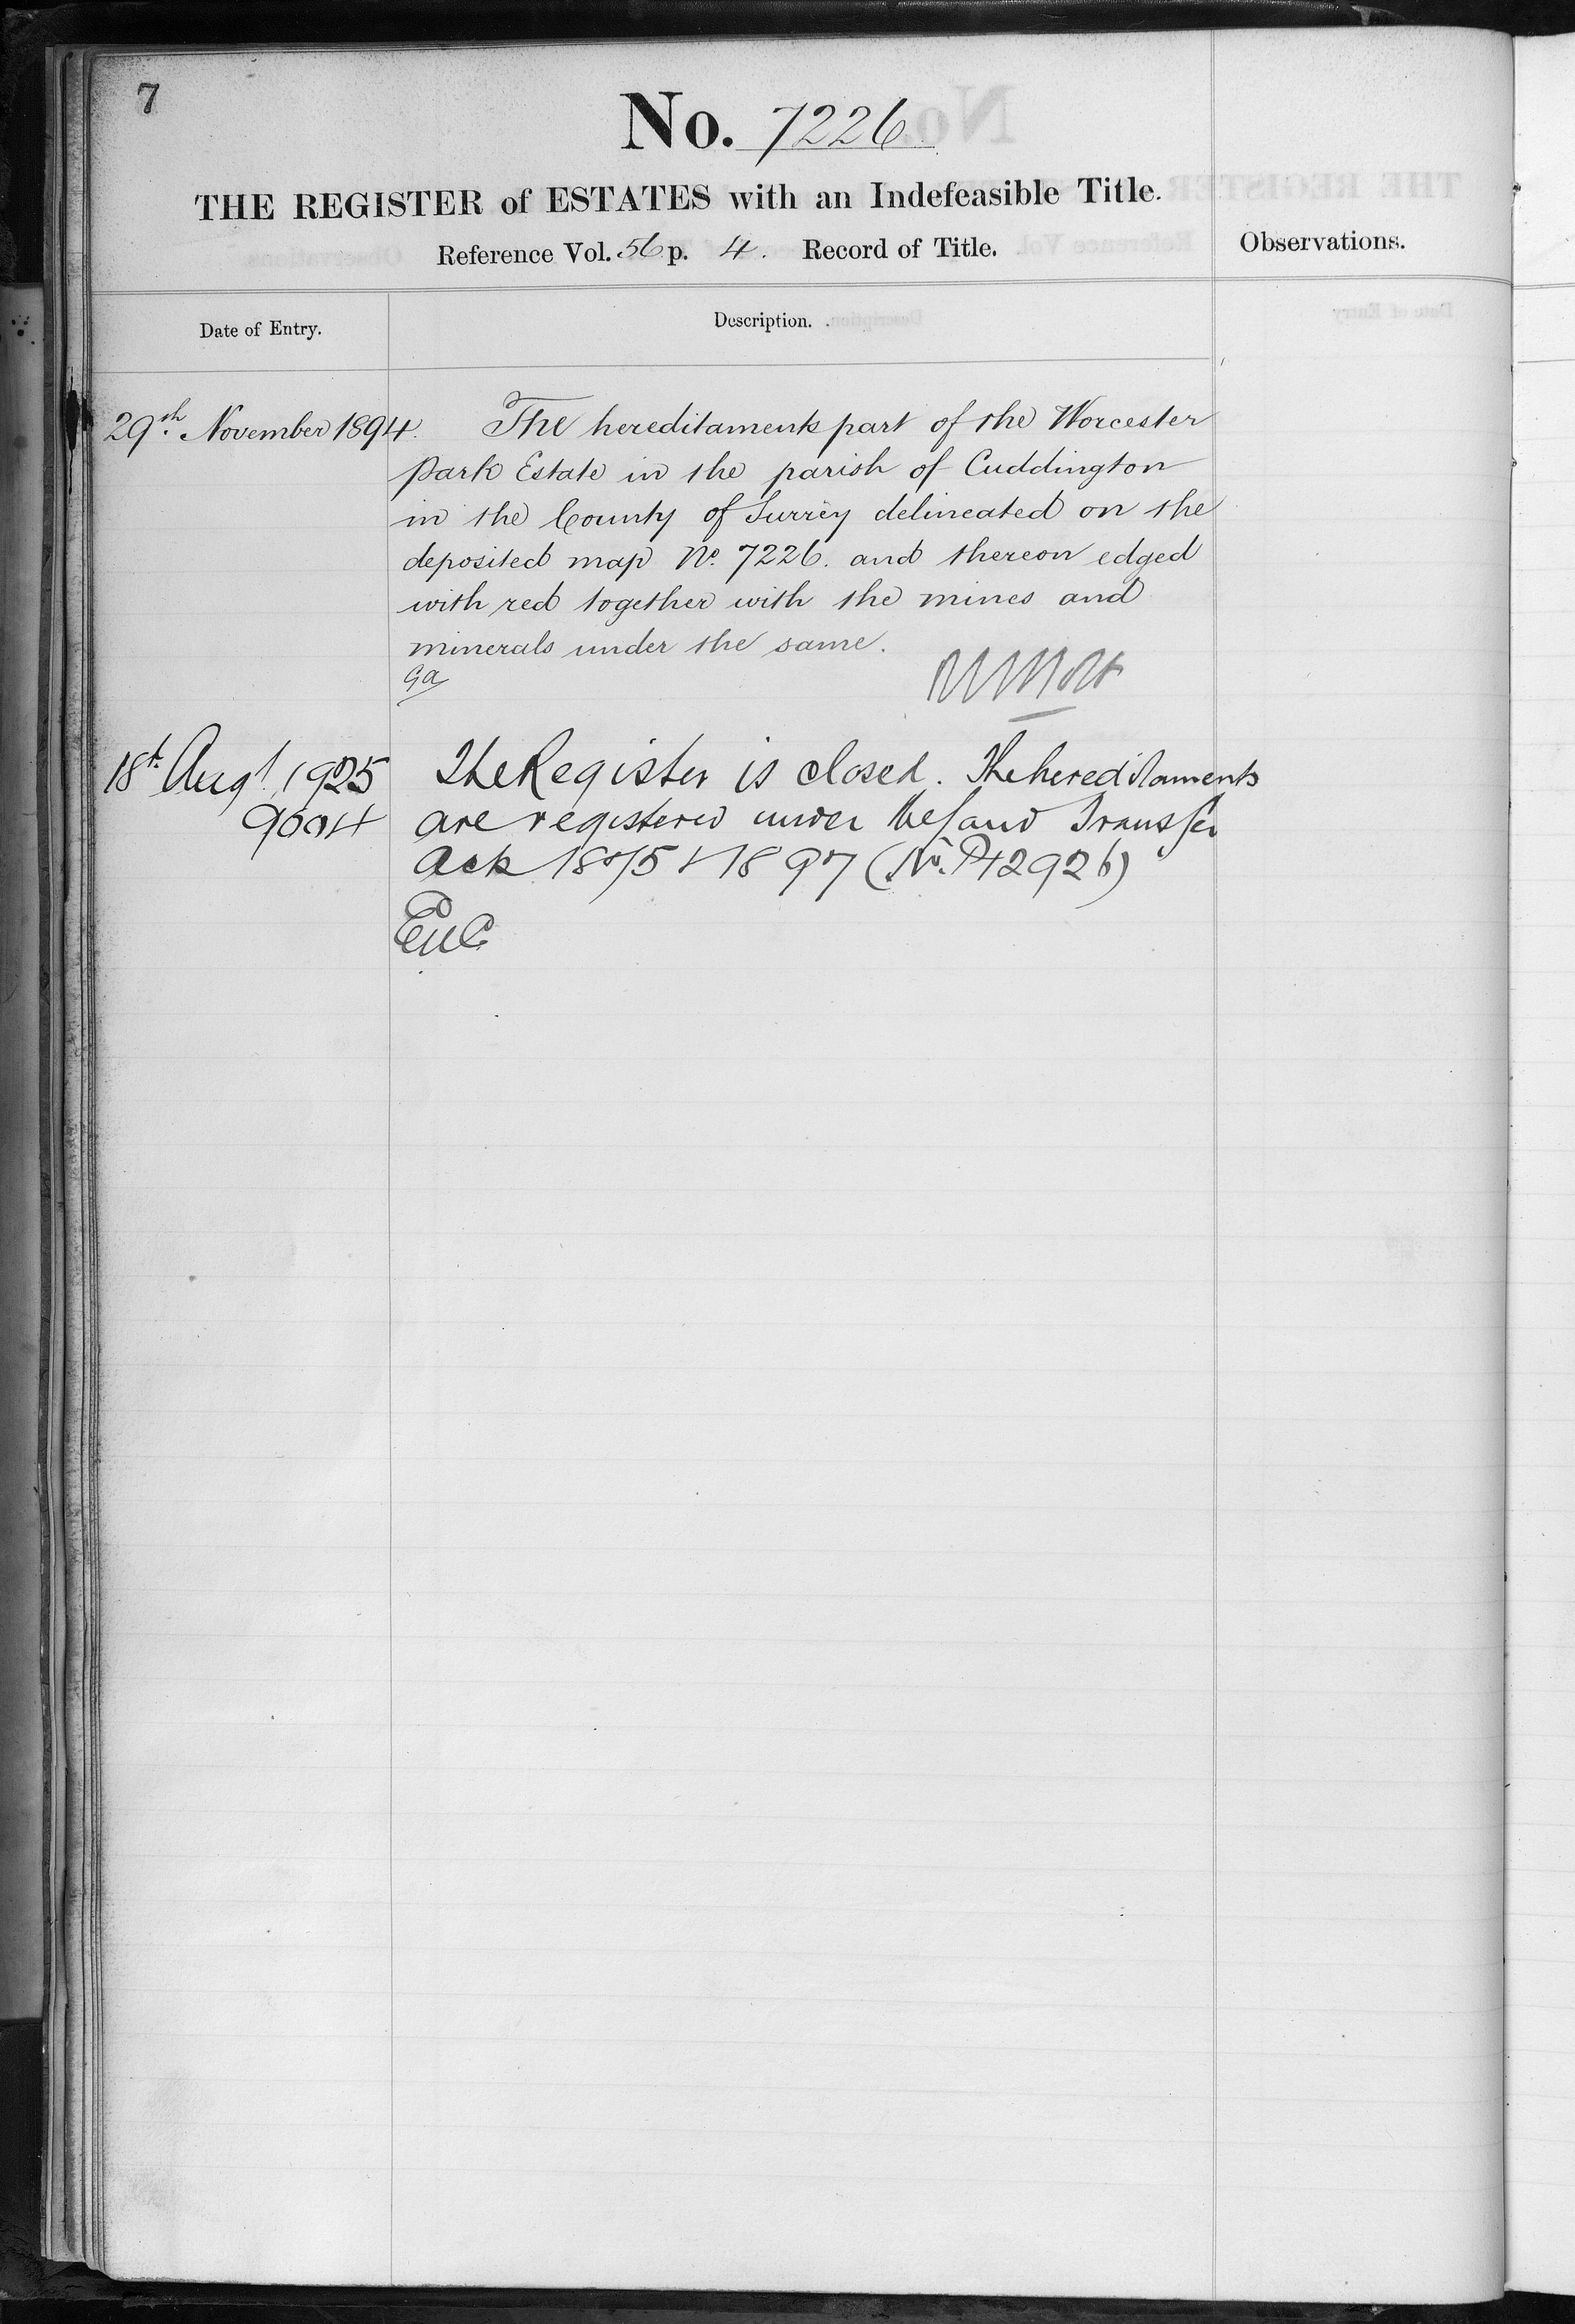 7
No. 7226
THE REGISTER of ESTATES with an Indefeasible Title.
Reference Vol. 56 p. 4. Record of Title.
Observations.
Date of Entry.
Description.
29th November 1894. The hereditaments part of the Worcester
Park Estate in the parish of Cuddington
in the County of Surrey delineated on the
deposited map No. 7226. and thereon edged
with red together with the mines and
minerals under the same.
Ga
18th Augt 1925 The Register is closed. The hereditaments
9004 are registered under the Land Transfer
Acts 1875 & 1897 (No. P42926)